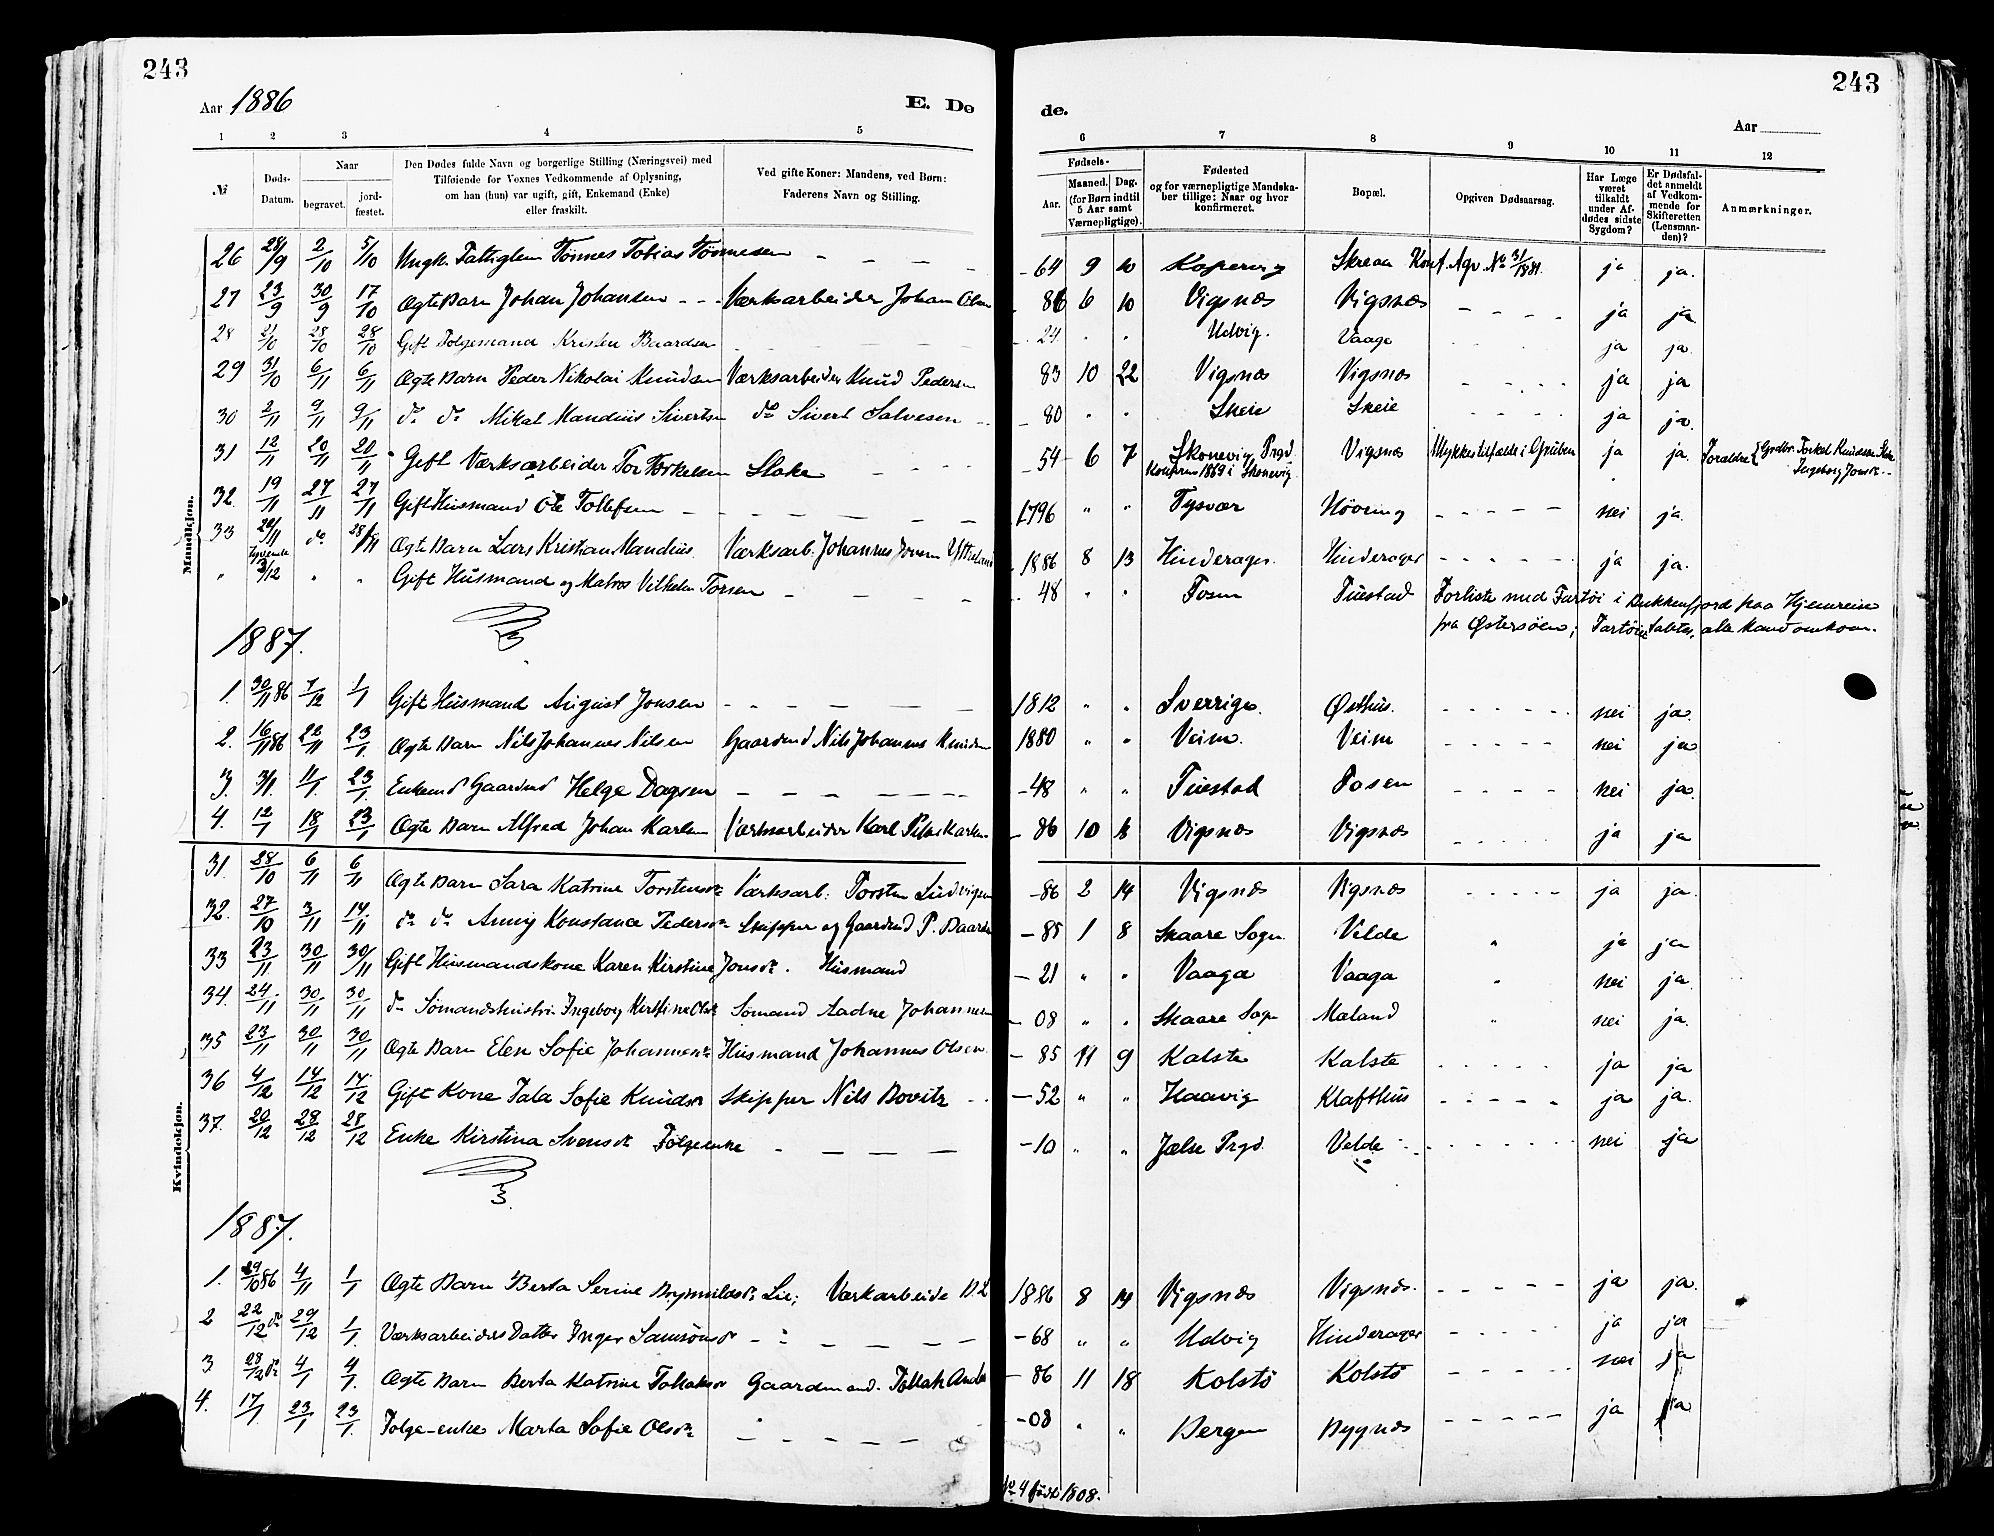 243
243
Aar 1886
E. Dø
de.
Aar
1 2 3 4 5
6 7 8 9 10 11 12
№
Døds-Datum.
Naar
begravet.
jord-fæstet.
Den Dødes fulde Navn og borgerlige Stilling (Næringsvei) med
Tilføiende for Voxnes Vedkommende af Oplysning,
om han (hun) var ugift, gift, Enkemand (Enke)
eller fraskilt.
Ved gifte Koner: Mandens, ved Børn:
Faderens Navn og Stilling.
Fødsels-
Aar.
Maaned.
Dag.
(for Børn indtil
5 Aar samt
Værnepligtige).
Fødested
og for værnepligtige Mandska-
ber tillige: Naar og hvor
konfirmeret.
Bopæl.
Opgiven Dødsaarsag.
Har Læge
været
tilkaldt
under Af-
dødes sidste
Sygdom?
Er Dødsfal-
det anmeldt
af Vedkom-
mende for
Skifteretten
(Lensman-
den)?
Anmærkninger.
Mandkjøn.
26 28/9 2/10 5/10 Ungk. Fattiglem Tönnes Tobias Tönnesen - - - - 64 9 10 Kopervig Skreaa Konf. Agv. No 31/1881. ja ja.
27 23/9 30/9 17/10 Ægte Barn Johan Johansen - - - Værksarbeider Johan Olsen - 86 6 10 Vigsnæs Vigsnæs - - - - ja ja
28 21/10 28/10 28/10 Gift Folgemand Kristen Baardsen - 24 " " Udvig. Vaage ja ja.
29 31/10 6/11 6/11 Ægte Barn Peder Nikolai Knudsen Værksarbeider Knud Pedersen 83 10 22 Vigsnæs Vigsnæs - - - - ja ja
30 2/11 9/11 9/11 do do Mikal Mandius Sivertsen do Sivert Salvesen - - 80 " " Skeie Skeie - - - - ja ja.
31 12/11 20/11 20/11 Gift Værksarbeider Tor Torkelsen Stake - - - - 54 6 7 Skonevig Prgd. Vigsnæs Ulykkestilfælde i Gruben ja ja.
Konfirm 1869 i Skonevig
Foraldre { Grdbr. Torkel Knudsen
Ingeborg Jonsd. -
32. 19/11 27/11 27/11 Gift Husmand Ole Tollefsen - - - - 1796 " " Tysvær Hövring - - - - - nei ja.
33 20/11 do 28/11 Ægte Barn Lars Kristian Mandius. Værksarb. Johannes Ytreland 1886 8 13 Hinderager. Hinderager - - - - - ja ja.
Tyvende
" 3/12 " " Gift Husmand og Matros Vilhelm Torsen - - - 48 " " Fosen Tuestad Forliste med Fartøi i Bukkenfjord paa Hjemreise
fra Østersøen; Fartöiet Tabtes, alle Mand omkom.
1887.
1. 30/11 86 7/12 1/1 Gift Husmand August Jonsen - - - - 1812 " " Sverrige. Østhus. - - - - - - nei ja.
2. 16/11 86 22/11 23/1 Ægte Barn Nils Johannes Nilsen Gaardmd Nils Johannes Knudsen 1880 " " Veim. Veim - - - - - nei ja
3. 3/1. 11/1 23/1. Enkemd Gaardmd Helge Dagsen - - - - - - - 48 " " Tuestad Fosen - - - - nei ja.
4. 12/1 18/1 23/1 Ægte Barn Alfred Johan Karlsen Værksarbeider Karl - 86 10 Vigsnæs Vigsnæs - - - - - ja ja
Kvindekjøn.
31. 28/10 6/11 6/11 Ægte Barn Sara Katrine Torstensdr Værksarb: Torsten Ludvigsen - 86 2 14 Vigsnæs Vigsnæs - - - - - ja ja.
32. 27/10 3/11 14/11 do do Anny Konstance Pedersdr Skipper og Gaardmd P. Baardsen - 85 1 8 Skaare Sogn. Velde " ja ja
33 23/11 30/11 30/11 Gift Husmandskone Karen Kirstine Jonsdr. Husmand - 21 " " Vaaga Vaaga " nei ja.
34. 24/11 30/11 30/11 do Sømandshustru Ingeborg Kirstine Olsdr Sømand Aadne Johannesen - 08 " " Skaare Sogn Mæland " nei ja.
35 23/11 30/11 30/11 Ægte Barn Elen Sofie Johannesdr Husmand Johannes Olsen - 85 11 9 Kalstø Kalstø - - - - - ja ja
36 4/12 14/12 14/12 Gift Kone Tala Sofie Knudsdr Skipper Nils Bovitz - - - 52 " " Haavig Klafthus - - - - - ja ja.
37. 20/12 28/12 28/12 Enke Kirstina Svensdr Folgeenke - - - - - - 10 " " Jælse Prgd. Velde - - - - - - nei ja
1887.
1. 29/10 86 4/11 1/1 Ægte Barn Berta Serine Brynildsdr: Lie; Værkarbeide B. L 1886 8 14 Vigsnæs Vigsnæs. - - - - - ja ja.
2 22/12 do 29/12 1/1. Værksarbeiders Datter Inger Samsonsdr - - - - - 68 " " Udvig Hinderager - - - - - ja ja
3 28/12 do 4/1 4/1. Ægte Barn Berta Katrine Tollaksdr Gaardmand. Tollak - 86 11 18 Kolstö Kolstö - - - - - nei ja
4. 17/1. 23/1 23/1. Folge-enke Marta Sofie Olsdr - - - - - - 08 " " Bergen Bygnæs - - - - - ja ja
No 4 född 1808.